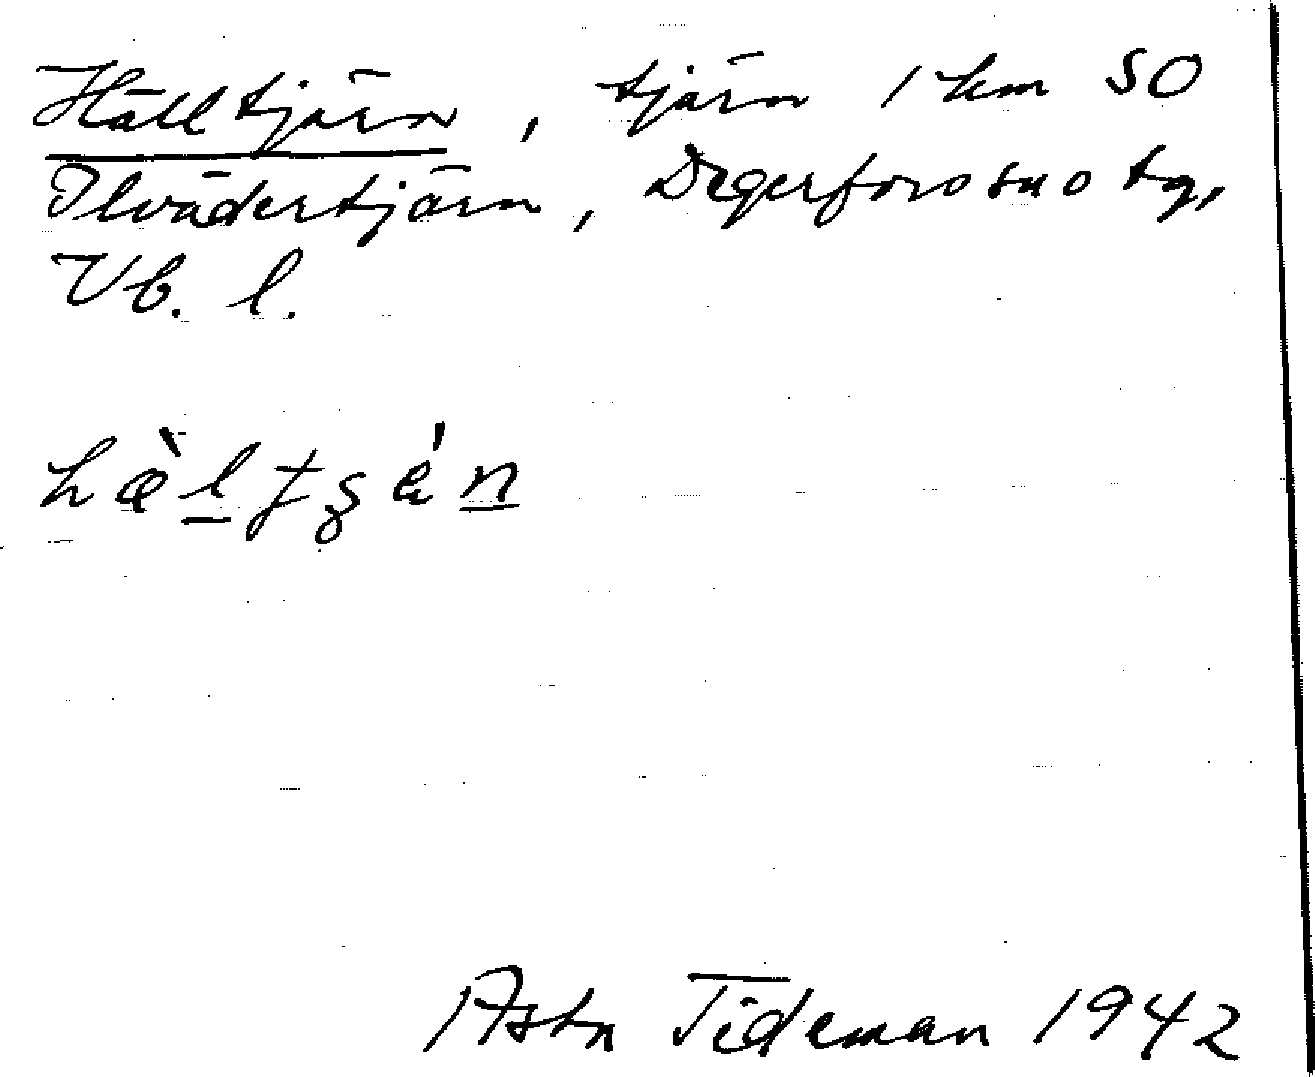 Hälltjärn, tjärn 1 km SO
Ilvädertjärn, Degerfors sn o tg,
Vb. l.
hæ̀l̠
Asta Tideman 1942